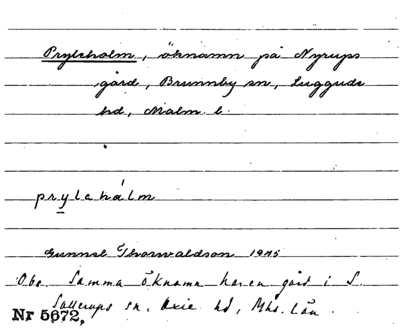 Pryleholm, öknamn på Nyrups
gård, Brunnby sn, Luggude
hd, Malm. l.
prylehålm
Gunnel Thorwaldson 1945
Obs. Samma öknamn har en gård i S.
Sallerups sn. Oxie hd, Mhs. län.
Nr 5672,